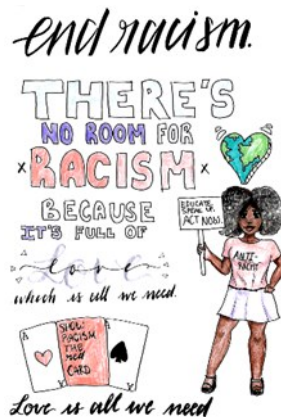 end racism.
THERE'S
NO ROOM FOR
RACISM
BECAUSE
IT'S FULL OF
love
which is all we need.
EDUCATE
SPEAK UP
ACT NOW.
ANTI-
RACIST
A
SHOW
RACISM
THE
red
CARD
A
Love is all we need